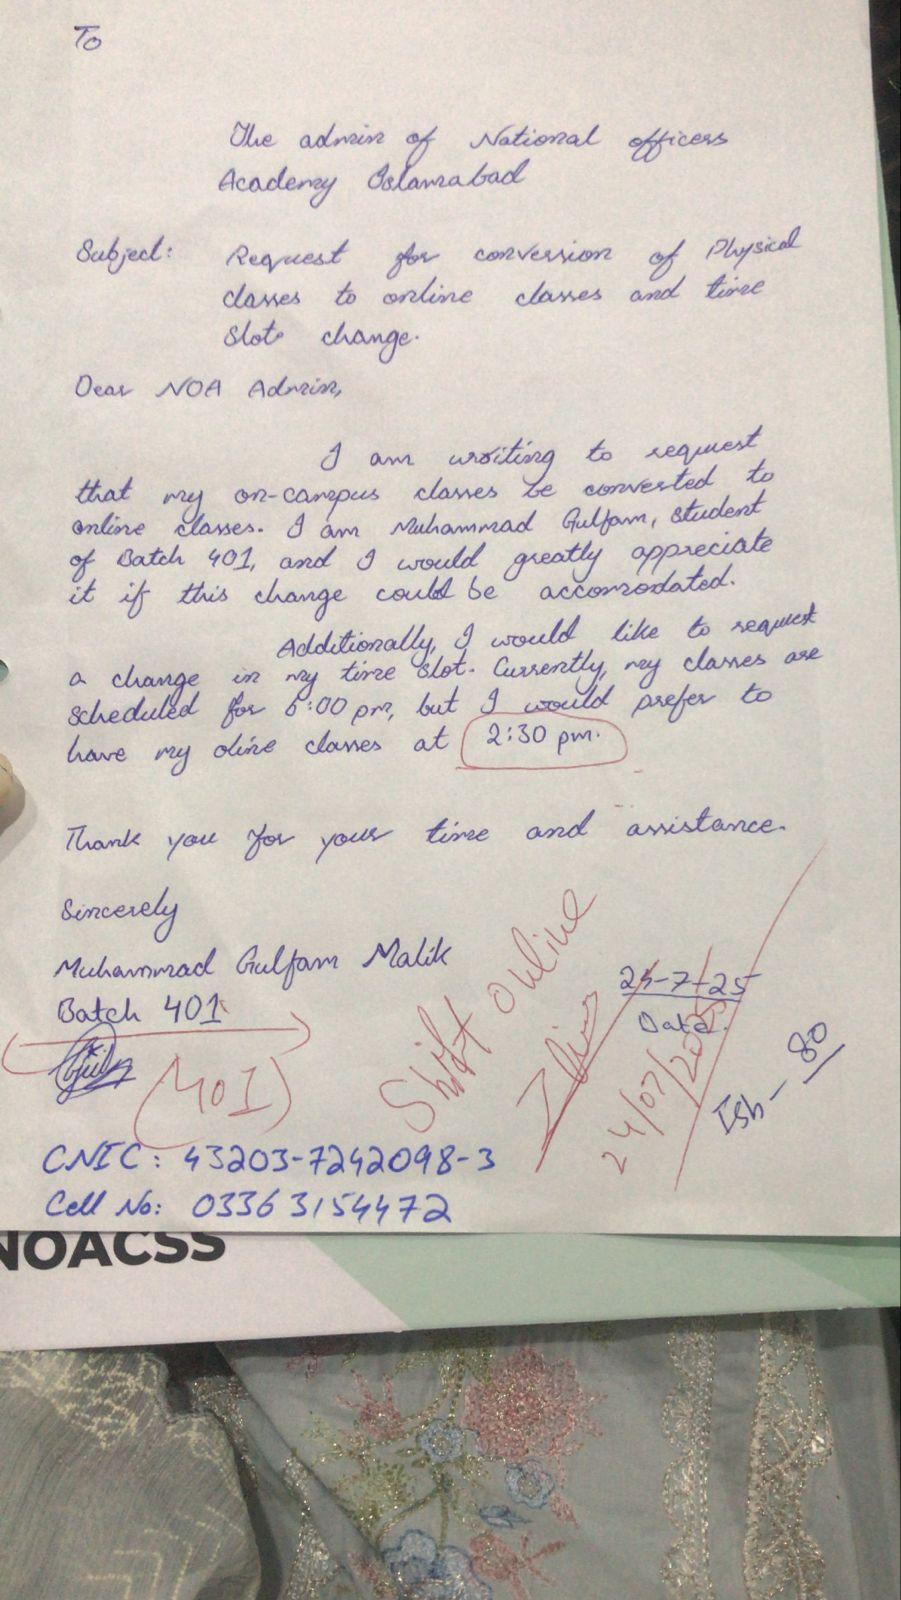 To
The admin of National officers
Academy Islamabad
Subject: Request for conversion of Physical
classes to online classes and time
slot change.
Dear NOA Admin,
I am writing to request
that my on-campus classes be converted to
online classes. I am Muhammad Gulfam, student
of Batch 401, and I would greatly appreciate
it if this change could be accomodated.
Additionally, I would like to request
a change in my time slot. Currently, my classes are
scheduled for 6:00 pm, but I would prefer to
have my oline classes at 2:30 pm.
Thank you for your time and assistance.
Sincerely
Muhammad Gulfam Malik
Batch 401
(401)
Shift online
24-7-25
Date.
24/07/2025
Isb- 80
CNIC: 43203-7242098-3
Cell No: 0336 3154472
NOACSS